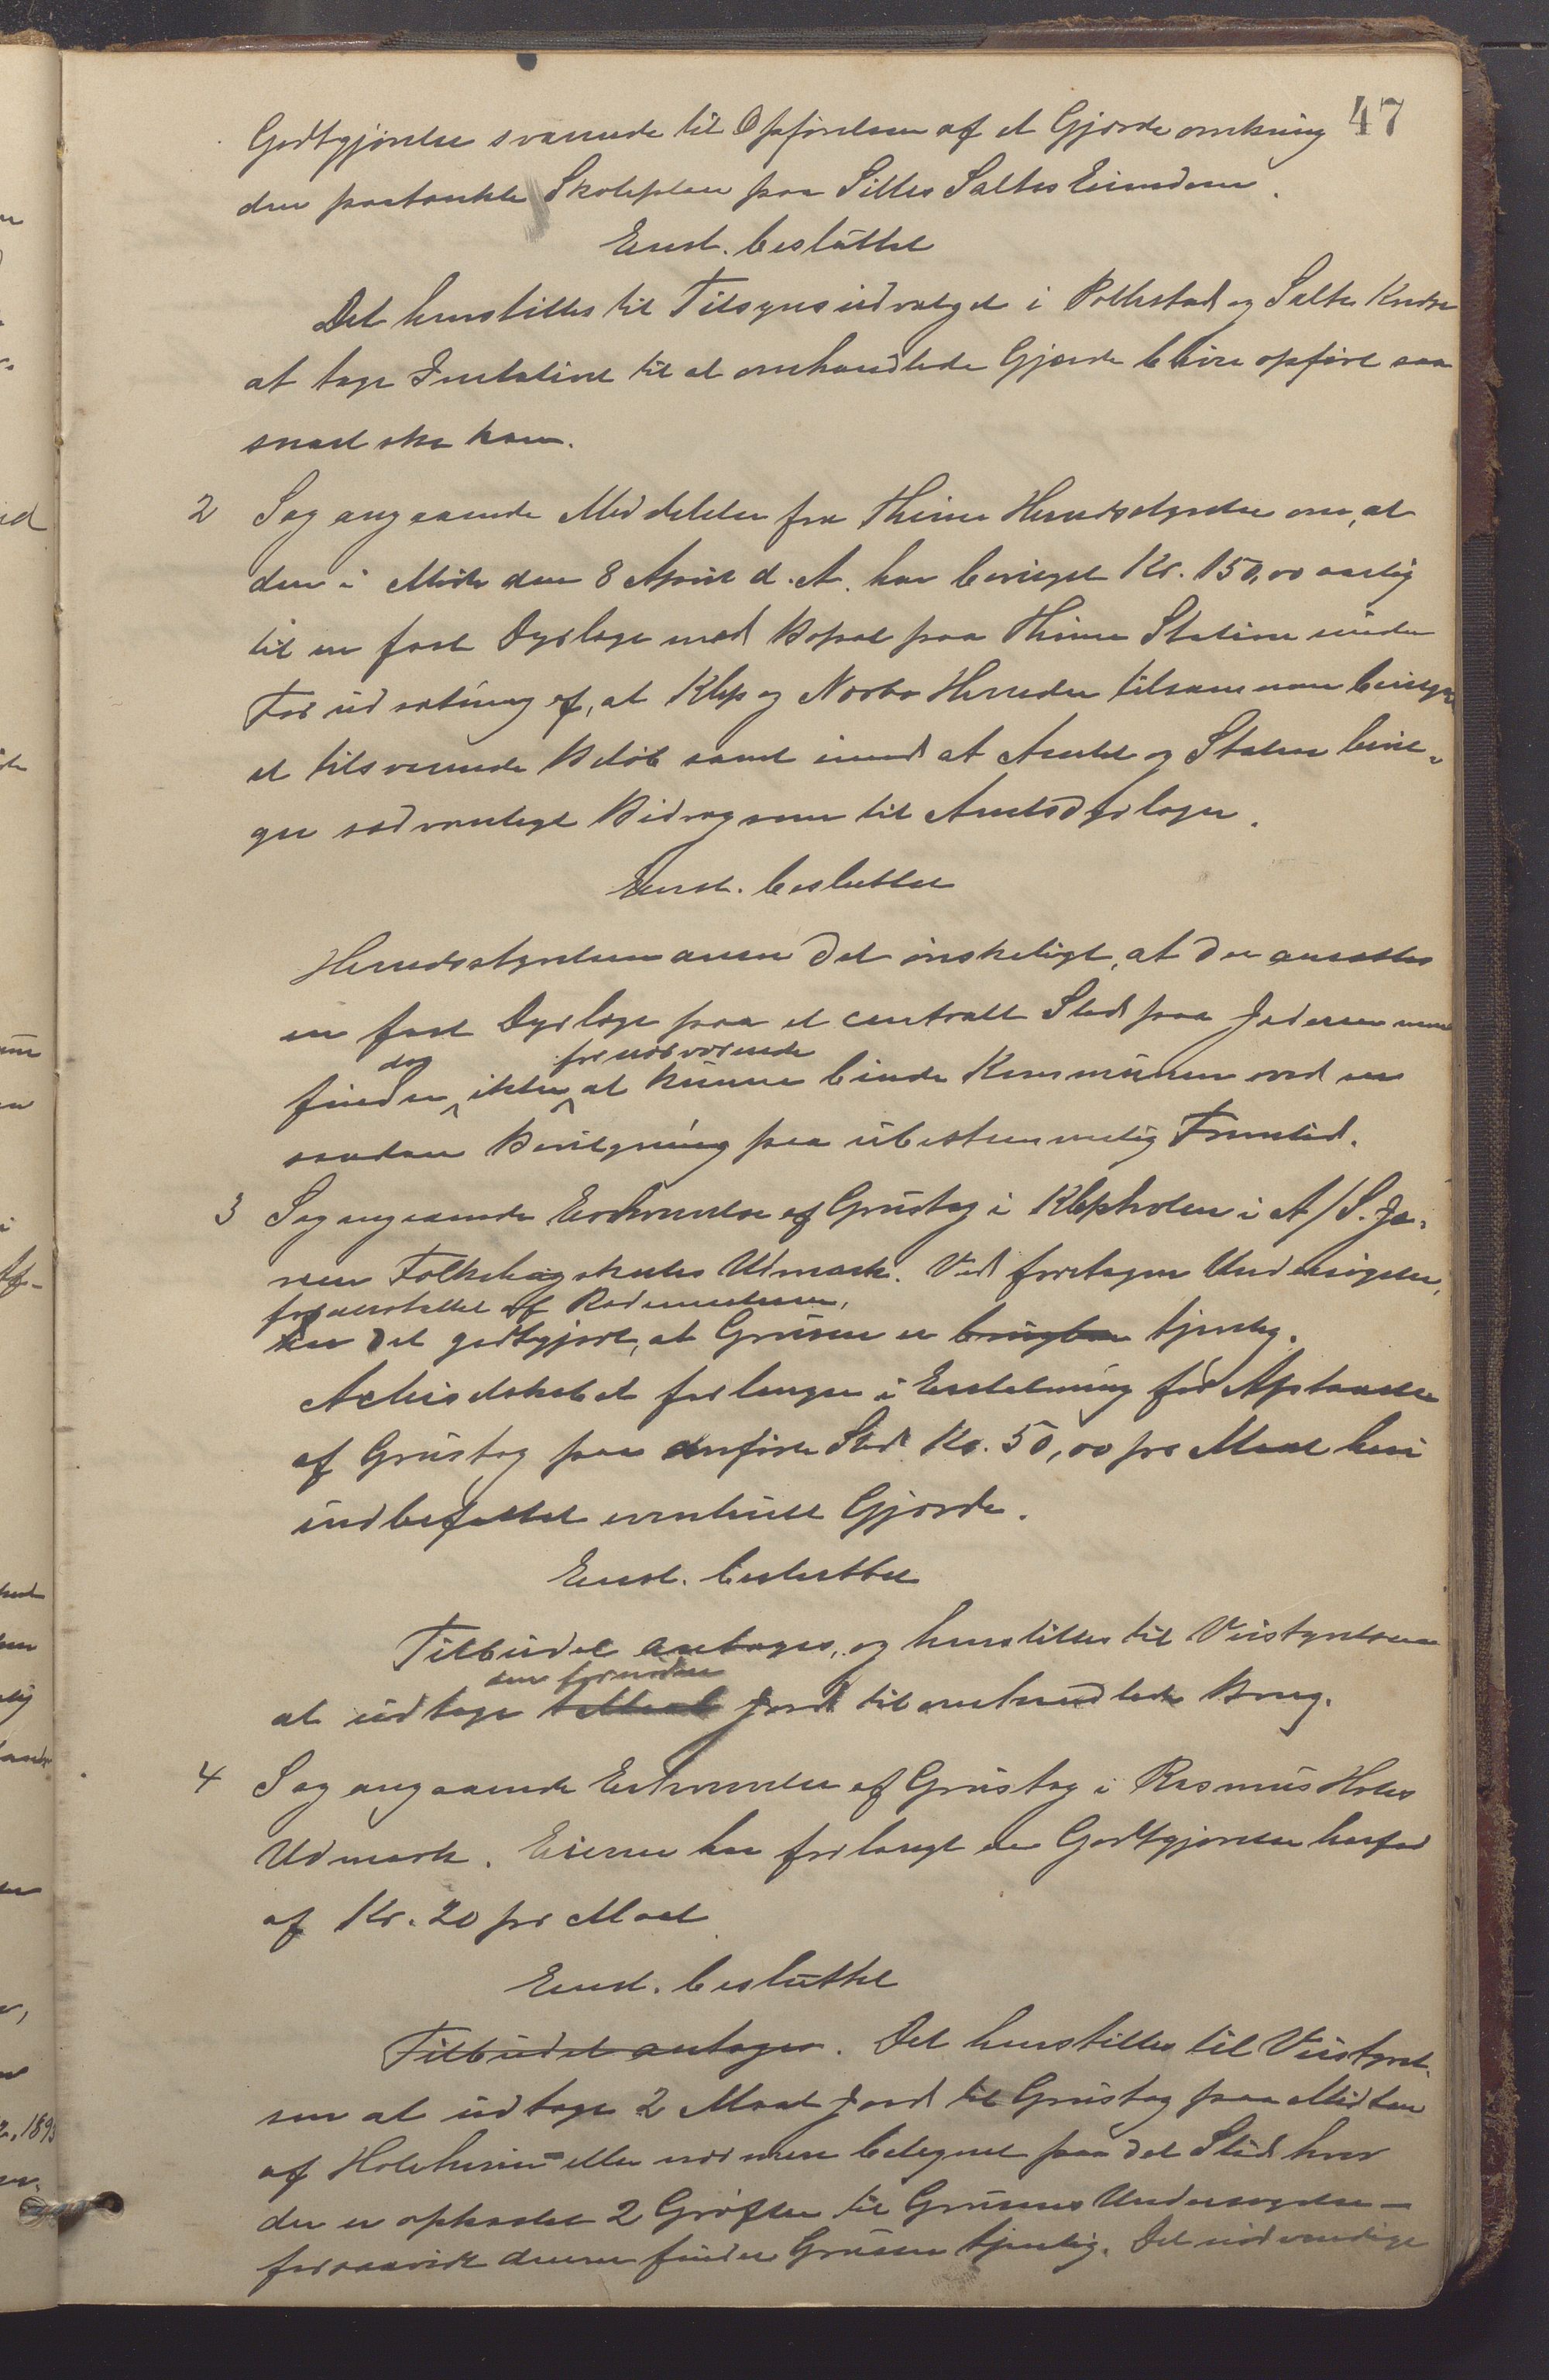 47
Godtgjörelse svarende til Opförelsen af et Gjærde omkring
den paatænkte Skoleplan paa Silles Saltes Eiendom.
Enst. besluttet
Det henstilles til Tilsynsudvalget i Pollestad og Salte Kreds
at tage Initativet til at omhandlede Gjærde bliver opført saa
snart ske kan.
2 Sag angaaende Meddelelse fra Thime Herredsstyrelse om, at
den i Møde den 8 April d. A. har bevilget Kr. 150,00 aarlig
til en fast Dyrlæge med Bopæl paa Thime Station under
Forudsætning af, at Klep og Nærbø Herreder tilsammen bevilger
et tilsvarende Beløb samt imod at Amtet og Staten bevil-
ger sædvanligt Bidrag som til Amtsdyrlæger.
Enst. besluttet
Herredsstyrelsen anser det ønskeligt, at der ansættes
en fast Dyrlæge paa et centralt Sted paa Jæderen men
dog fornærværende
finder ikke at kunne binde Kommunen ved en
saadan Bevilgning paa ubestemmelig Fremtid.
3 Sag angaaende Erhvervelse af Grustag i Klepholen i A/S. Jæ-
rens Folkehøgskules Udmark. Ved foretagen Undersøgelse,
foranstaltet af Rodemesteren,
har det godtgjort, at Grusen er brugbar tjenlig.
Actieselskabet forlanger i Erstatning for Afstaaelse
af Grustag paa anførte Sted Kr. 50,00 pr Maal heri
indbefattet eventuelt Gjærde.
Enst. besluttet
Tilbudet antages, og henstilles til Veistyrelsen
den fornødne
at udtage Jord til omhandlede Brug.
4 Sag angaaende Erhvervelse af Grustag i Rasmus Holes
Udmark. Eieren har forlangt en Godtgjørelse herfor
af Kr. 20 pr Maal
Enst. besluttet
Tilbudet antages. Det henstilles til Veistyrel-
sen at udtage 2 Maal Jord til Grustag paa Midten
af eller nærmere betegnet paa det Sted hvor
der er opkastet 2 Grøfter til Grusens Undersøgelse –
forsaavidt denne finder Grusen tjenlig. Det nødvendige